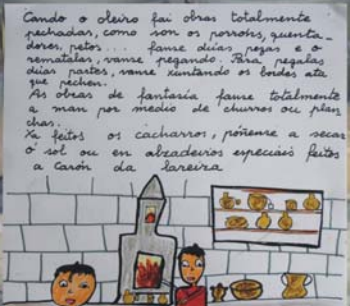 Cando o oleiro fai obras totalmente
pechadas, como son os porróns, quenta-
dores, petos... fanse dúas pezas e ó
rematalas, vanse pegando. Para pegalas
dúas partes, vanse xuntando os bordes ata
que pechen.
As obras de fantaría fanse totalmente
a man por medio de churros ou plan
chas.
Xa feitos os cacharros, póñense a secar
ó sol ou en alzadeiros especiais feitos
a carón da lareira